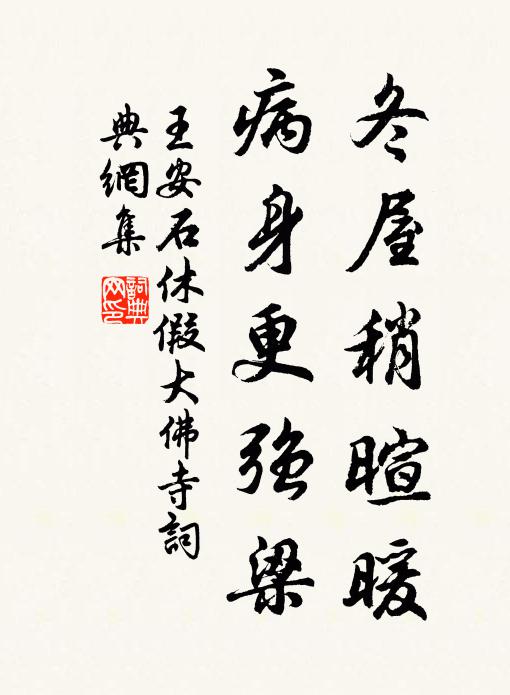 冬屋稍暄暖
病身更強梁
王安石休假大佛寺詞
典網集
詞典
网印